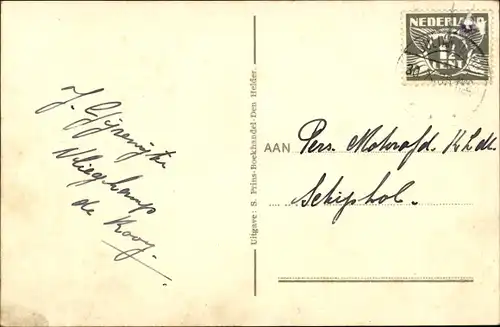 NEDERLAND
J. Gijzenijtze
Vliegkamp
de Kooy.
Uitgave: S. Prins-Boekhandel-Den Helder.
AAN Pers. Motorafd. K.L.M.
Schiphol.